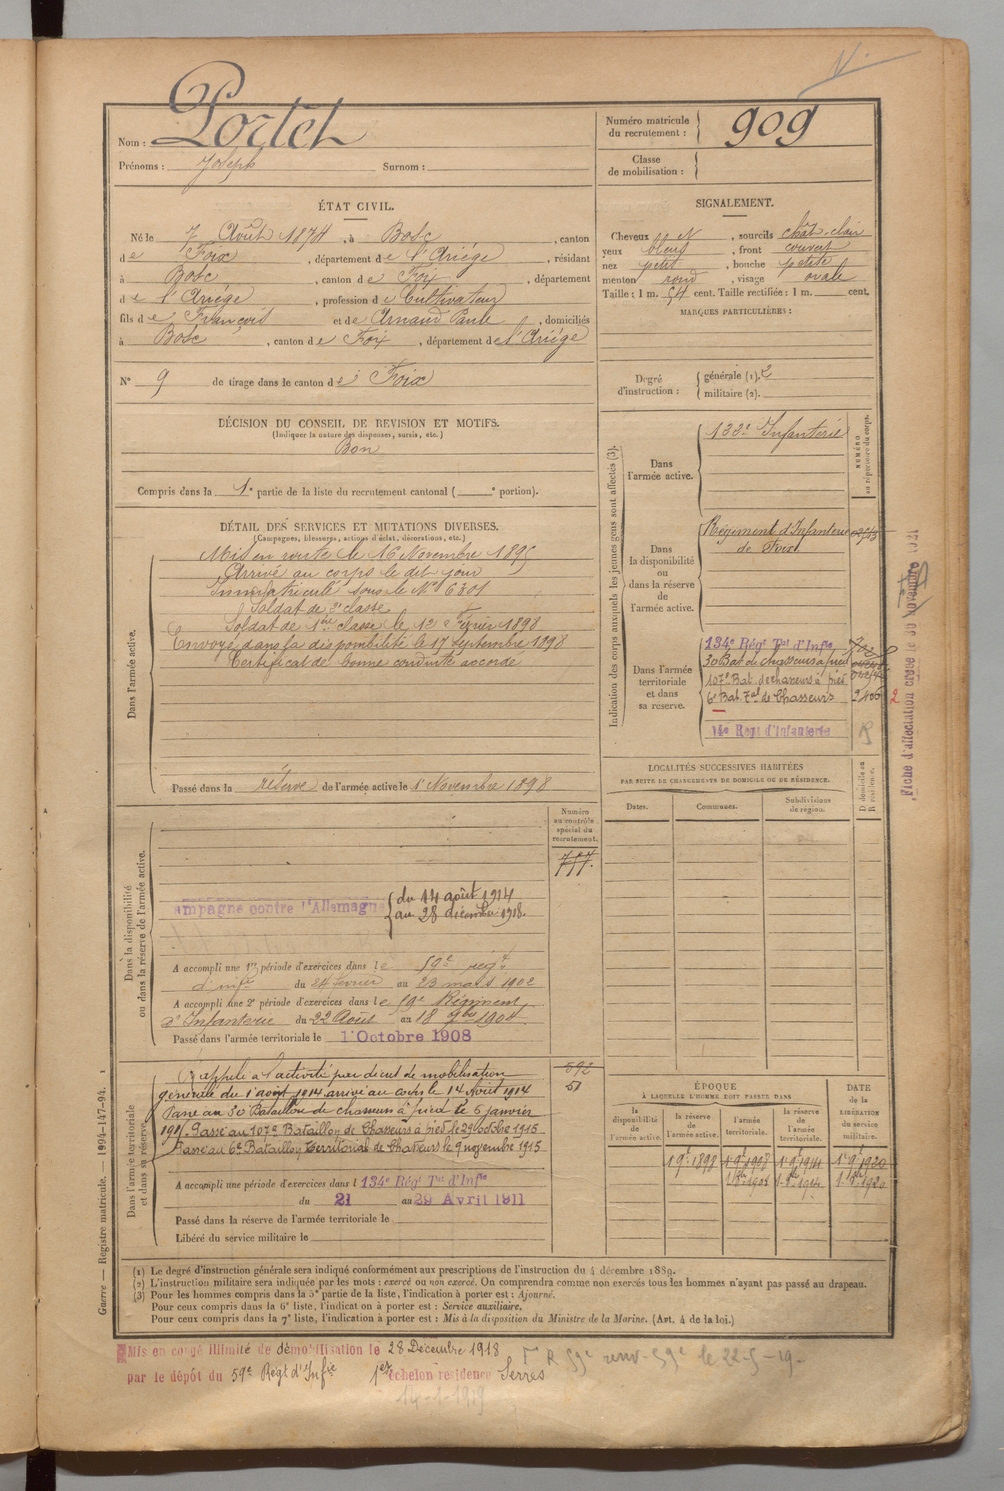 Nom : Portet
Prénoms : Joseph Surnom :
Numéro matricule du recrutement : 909
Classe de mobilisation :
ÉTAT CIVIL.
Né le 7 Août 1874, à Bosc, canton
de Foix, département de l'Ariége, résidant
à Bosc, canton de Foix, département
de l'Ariége, profession de Cultivateur
fils de François et de Arnaud Paule, domiciliés
à Bosc, canton de Foix, département de l'Ariége
N° 9 de tirage dans le canton de Foix
SIGNALEMENT.
Cheveux, sourcils chat. clair
yeux bleus, front couvert
nez petit, bouche petite
menton rond, visage ovale
Taille : 1 m. 54 cent. Taille rectifiée : 1 m. cent.
MARQUES PARTICULIÈRES :
Degré d'instruction : générale (1). 2
militaire (2).
DÉCISION DU CONSEIL DE REVISION ET MOTIFS.
(Indiquer la nature des dispenses, sursis, etc.)
Bon
Compris dans la 1e partie de la liste du recrutement cantonal ( e portion).
DÉTAIL DES SERVICES ET MUTATIONS DIVERSES.
(Campagnes, blessures, actions d'éclat, décorations, etc.)
Dans l'armée active.
Mis en route le 16 Novembre 1895
Arrivé au corps le dit jour
Immatriculé sous le N° 6301
Soldat de 2e classe
Soldat de 1ère classe le 12 Février 1898
Envoyé dans la disponibilité le 17 Septembre 1898
Certificat de bonne conduite accordé
Passé dans la réserve de l'armée active le 1 Novembre 1898
Indication des corps auxquels les jeunes gens sont affectés (3).
NUMÉRO au répertoire du corps.
Dans l'armée active.
Infanterie
Dans la disponibilité ou dans la réserve de l'armée active.
Régiment d'Infanterie
de Foix
Dans l'armée territoriale et dans sa réserve.
134e Régt Tal d'Infie
30 Bat de chasseurs à pied
107e Bat. de chasseurs à pied
6e Bat. Tal de Chasseurs
2
14e Régt d'Infanterie
R
LOCALITÉS SUCCESSIVES HABITÉES
PAR SUITE DE CHANGEMENTS DE DOMICILE OU DE RÉSIDENCE.
Dates. Communes. Subdivisions de région. D domicile ou R résidence.
Dans la disponibilité ou dans la réserve de l'armée active.
Numéro au contrôle spécial du recrutement.
757.
ampagne contre l'Allemagne du 14 août 1914
au 28 décembre 1918.
A accompli une 1re période d'exercices dans le 59e régt
d'infie du 24 février au 23 mars 1902
A accompli une 2e période d'exercices dans le 59e Régiment
d'Infanterie du 22 Août au 18 7bre 1904
Passé dans l'armée territoriale le 1 Octobre 1908
Dans l'armée territoriale et dans sa réserve.
592
51
Rappelé à l'activité par décret de mobilisation
générale du 1 août 1914 arrivé au corps le 14 Août 1914
Passé au 30 Bataillon de chasseurs à pied le 5 janvier
1915. Passé au 107e Bataillon de Chasseurs à pied le 29 octobre 1915
Passé au 6e Bataillon Territorial de Chasseurs le 9 novembre 1915
A accompli une période d'exercices dans l 134e Régt Tal d'Infie
du 21 au 29 Avril 1911
Passé dans la réserve de l'armée territoriale le
Libéré du service militaire le
ÉPOQUE
À LAQUELLE L'HOMME DOIT PASSER DANS
la disponibilité de l'armée active. la réserve de l'armée active. l'armée territoriale. la réserve de l'armée territoriale.
DATE de la LIBÉRATION du service militaire.
1 9e 1898 1 9e 1908 1 9e 1914 1 9e 1920
(1) Le degré d'instruction générale sera indiqué conformément aux prescriptions de l'instruction du 4 décembre 1889.
(2) L'instruction militaire sera indiquée par les mots : exercé ou non exercé. On comprendra comme non exercés tous les hommes n'ayant pas passé au drapeau.
(3) Pour les hommes compris dans la 5e partie de la liste, l'indication à porter est : Ajourné.
Pour ceux compris dans la 6e liste, l'indication à porter est : Service auxiliaire.
Pour ceux compris dans la 7e liste, l'indication à porter est : Mis à la disposition du Ministre de la Marine. (Art. 4 de la loi.)
Guerre — Registre matricule. — 1994-147-94. 1
Mis en congé illimité de démobilisation le 28 Décembre 1918
par le dépôt du 59e Régt d'Infie 1er échelon résidence Serres